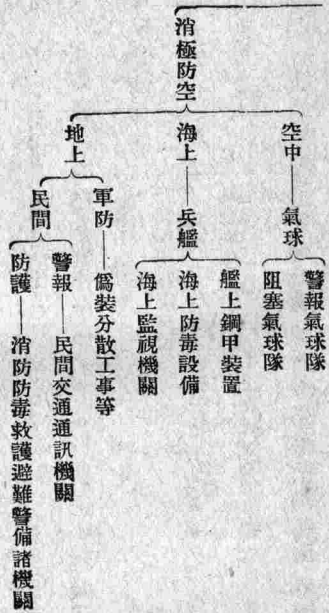 消極防空
空中
氣球
警報氣球隊
阻塞氣球隊
海上
兵艦
艦上鋼甲裝置
海上防毒設備
海上監視機關
地上
軍防
僞裝分散工事等
民間
警報
民間交通通訊機關
防護
消防防毒救護避難警備諸機關